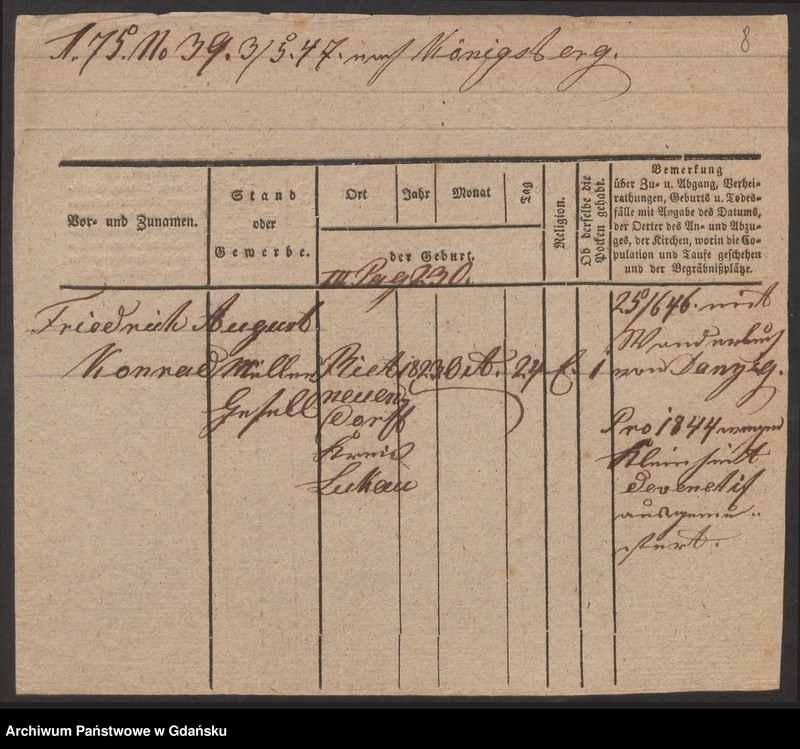 A. 75. No 39. 3/5. 47. nach Königsberg.
8
Vor- und Zunamen.
Stand
oder
Gewerbe.
Ort
Jahr
Monat
Tag
der Geburt.
Religion.
Ob derselbe die
Pocken gehabt.
Bemerkung
über Zu- u. Abgang, Verhei-
rathungen, Geburts u. Todes-
fälle mit Angabe des Datums,
der Oerter des An- und Abzu-
ges, der Kirchen, worin die Co-
pulation und Taufe geschehen
und der Begräbnißplätze.
III Pag 230.
Friedrich August
Konrad
Müller
Gesell
Riet
neuen
dorff
Kreis
Luckau
1823
Oct.
24
E.
1
25/6 46. mit
Wanderbuch
von Danzig.
Pro 1844 wegen
Klein
ausgemu-
stert.
Archiwum Państwowe w Gdańsku